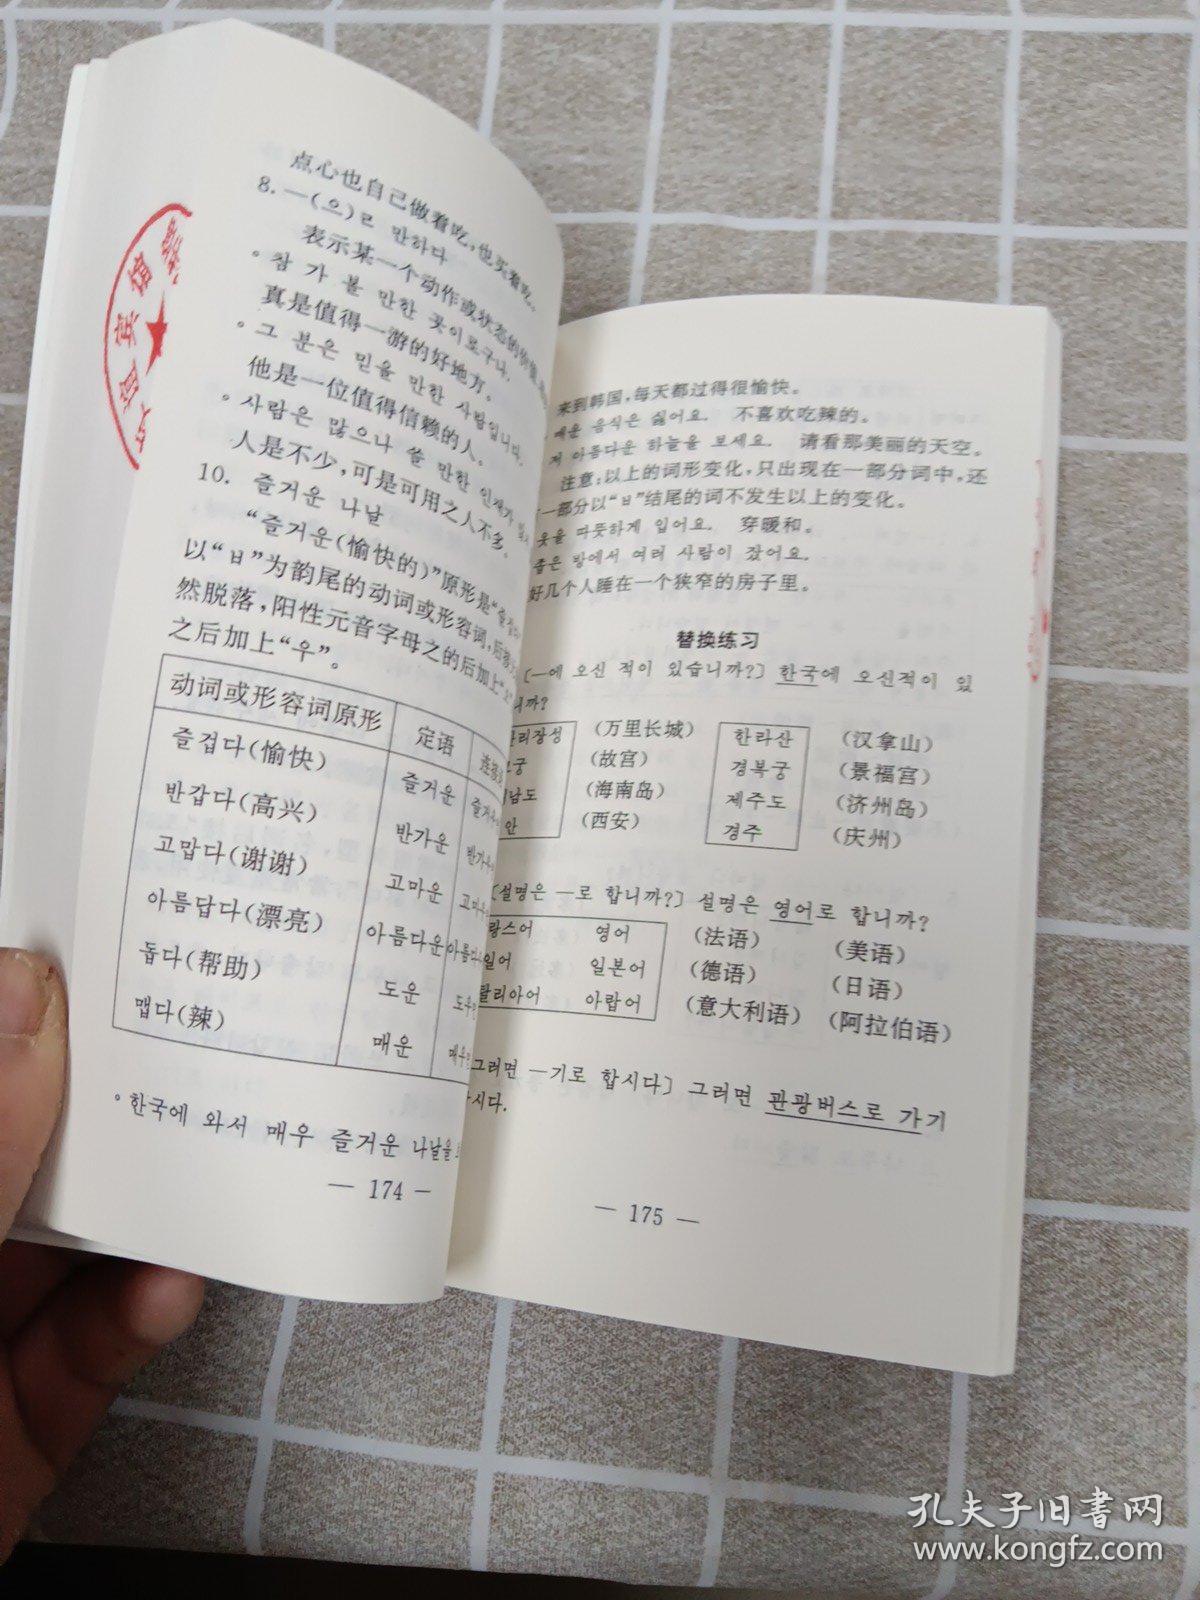 点心也自己做着吃,也买着吃。
8. —(으)ㄹ 만하다
表示某一个动作或状态的价值
◦참 가 볼 만한 곳이로구나.
真是值得一游的好地方。
◦그 분은 믿을 만한 사람입니다.
他是一位值得信赖的人。
◦사람은 많으나 쓸 만한 인재가
人是不少,可是可用之人不多。
10. 즐거운 나날
“즐거운(愉快的)”原形是“즐겁다
以“ㅂ”为韵尾的动词或形容词,后接
然脱落,阳性元音字母之的后加上
之后加上“우”。
动词或形容词原形 定语
즐겁다(愉快) 즐거운
반갑다(高兴) 반가운
고맙다(谢谢) 고마운
아름답다(漂亮) 아름다운
돕다(帮助) 도운
맵다(辣) 매운
◦한국에 와서 매우 즐거운 나날을
— 174 —
来到韩国,每天都过得很愉快。
매운 음식은 싫어요. 不喜欢吃辣的。
저 아름다운 하늘을 보세요. 请看那美丽的天空。
注意:以上的词形变化,只出现在一部分词中,还
一部分以“ㅂ”结尾的词不发生以上的变化。
옷을 따뜻하게 입어요. 穿暖和。
좁은 방에서 여러 사람이 잤어요.
好几个人睡在一个狭窄的房子里。
替换练习
[—에 오신 적이 있습니까?] 한국에 오신적이 있
니까?
리장성 (万里长城) 한라산 (汉拿山)
궁 (故宫) 경복궁 (景福宫)
남도 (海南岛) 제주도 (济州岛)
안 (西安) 경주 (庆州)
[설명은 —로 합니까?] 설명은 영어로 합니까?
랑스어 영어 (法语) (美语)
일어 일본어 (德语) (日语)
탈리아어 아랍어 (意大利语) (阿拉伯语)
그러면 —기로 합시다] 그러면 관광버스로 가기
시다.
— 175 —
孔夫子旧書网
www.kongfz.com